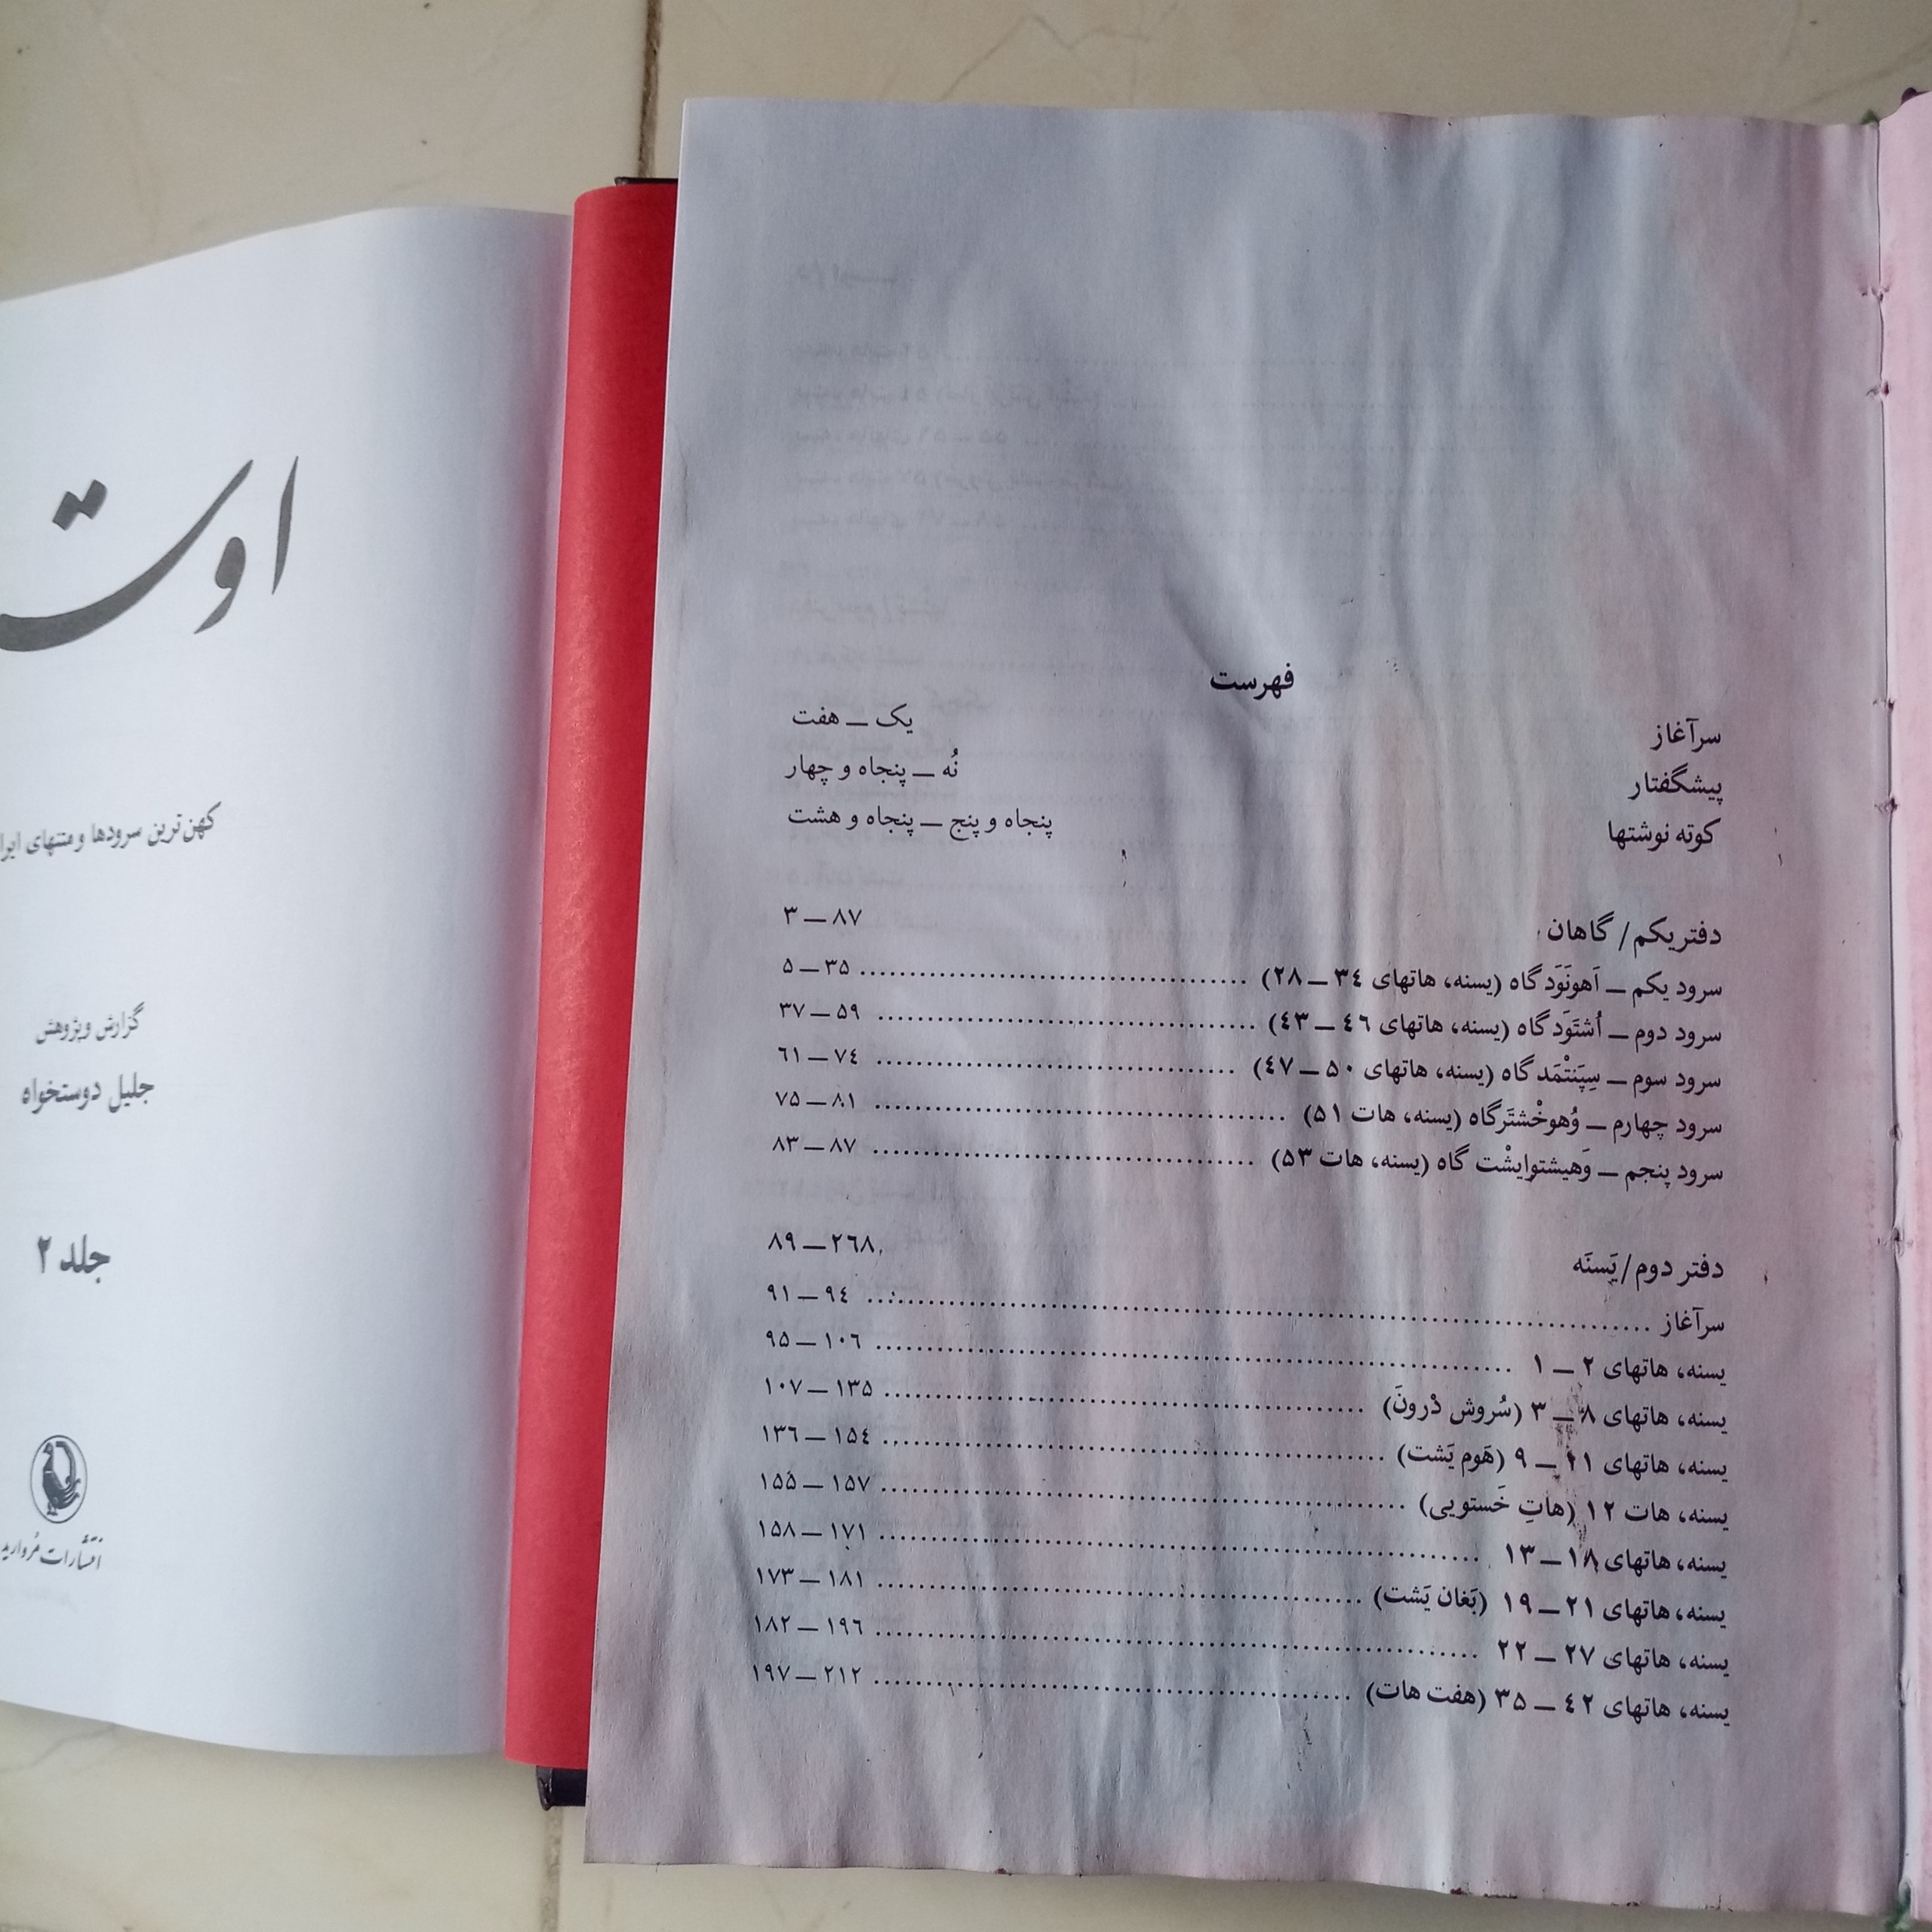 فهرست
سرآغاز یک — هفت
پیشگفتار نُه — پنجاه و چهار
کوته نوشتها پنجاه و پنج — پنجاه و هشت
دفتر یکم/ گاهان ۳ — ۸۷
سرود یکم — اَهونَوَد گاه (یسنه، هاتهای ۳۴ — ۲۸) ........ ۵ — ۳۵
سرود دوم — اُشتَوَد گاه (یسنه، هاتهای ۴۶ — ۴۳) ........ ۳۷ — ۵۹
سرود سوم — سِپَنتْمَد گاه (یسنه، هاتهای ۵۰ — ۴۷) ........ ۶۱ — ۷۴
سرود چهارم — وُهوخْشتَرگاه (یسنه، هات ۵۱) ........ ۷۵ — ۸۱
سرود پنجم — وَهیشتوایشْت گاه (یسنه، هات ۵۳) ........ ۸۳ — ۸۷
دفتر دوم/ یَسنَه ۸۹ — ۲۶۸
سرآغاز ........ ۹۱ — ۹۴
یسنه، هاتهای ۲ — ۱ ........ ۹۵ — ۱۰۶
یسنه، هاتهای ۸ — ۳ (سُروش دْرونَ) ........ ۱۰۷ — ۱۳۵
یسنه، هاتهای ۱۱ — ۹ (هَوم یَشت) ........ ۱۳۶ — ۱۵۴
یسنه، هات ۱۲ (هاتِ خَستویی) ........ ۱۵۵ — ۱۵۷
یسنه، هاتهای ۱۸ — ۱۳ ........ ۱۵۸ — ۱۷۱
یسنه، هاتهای ۲۱ — ۱۹ (بَغان یَشت) ........ ۱۷۳ — ۱۸۱
یسنه، هاتهای ۲۷ — ۲۲ ........ ۱۸۲ — ۱۹۶
یسنه، هاتهای ۴۲ — ۳۵ (هفت هات) ........ ۱۹۷ — ۲۱۲
اوت
کهن‌ترین سرودها و متنهای ایرا
گزارش و پژوهش
جلیل دوستخواه
جلد ۲
انتشارات مُروارید